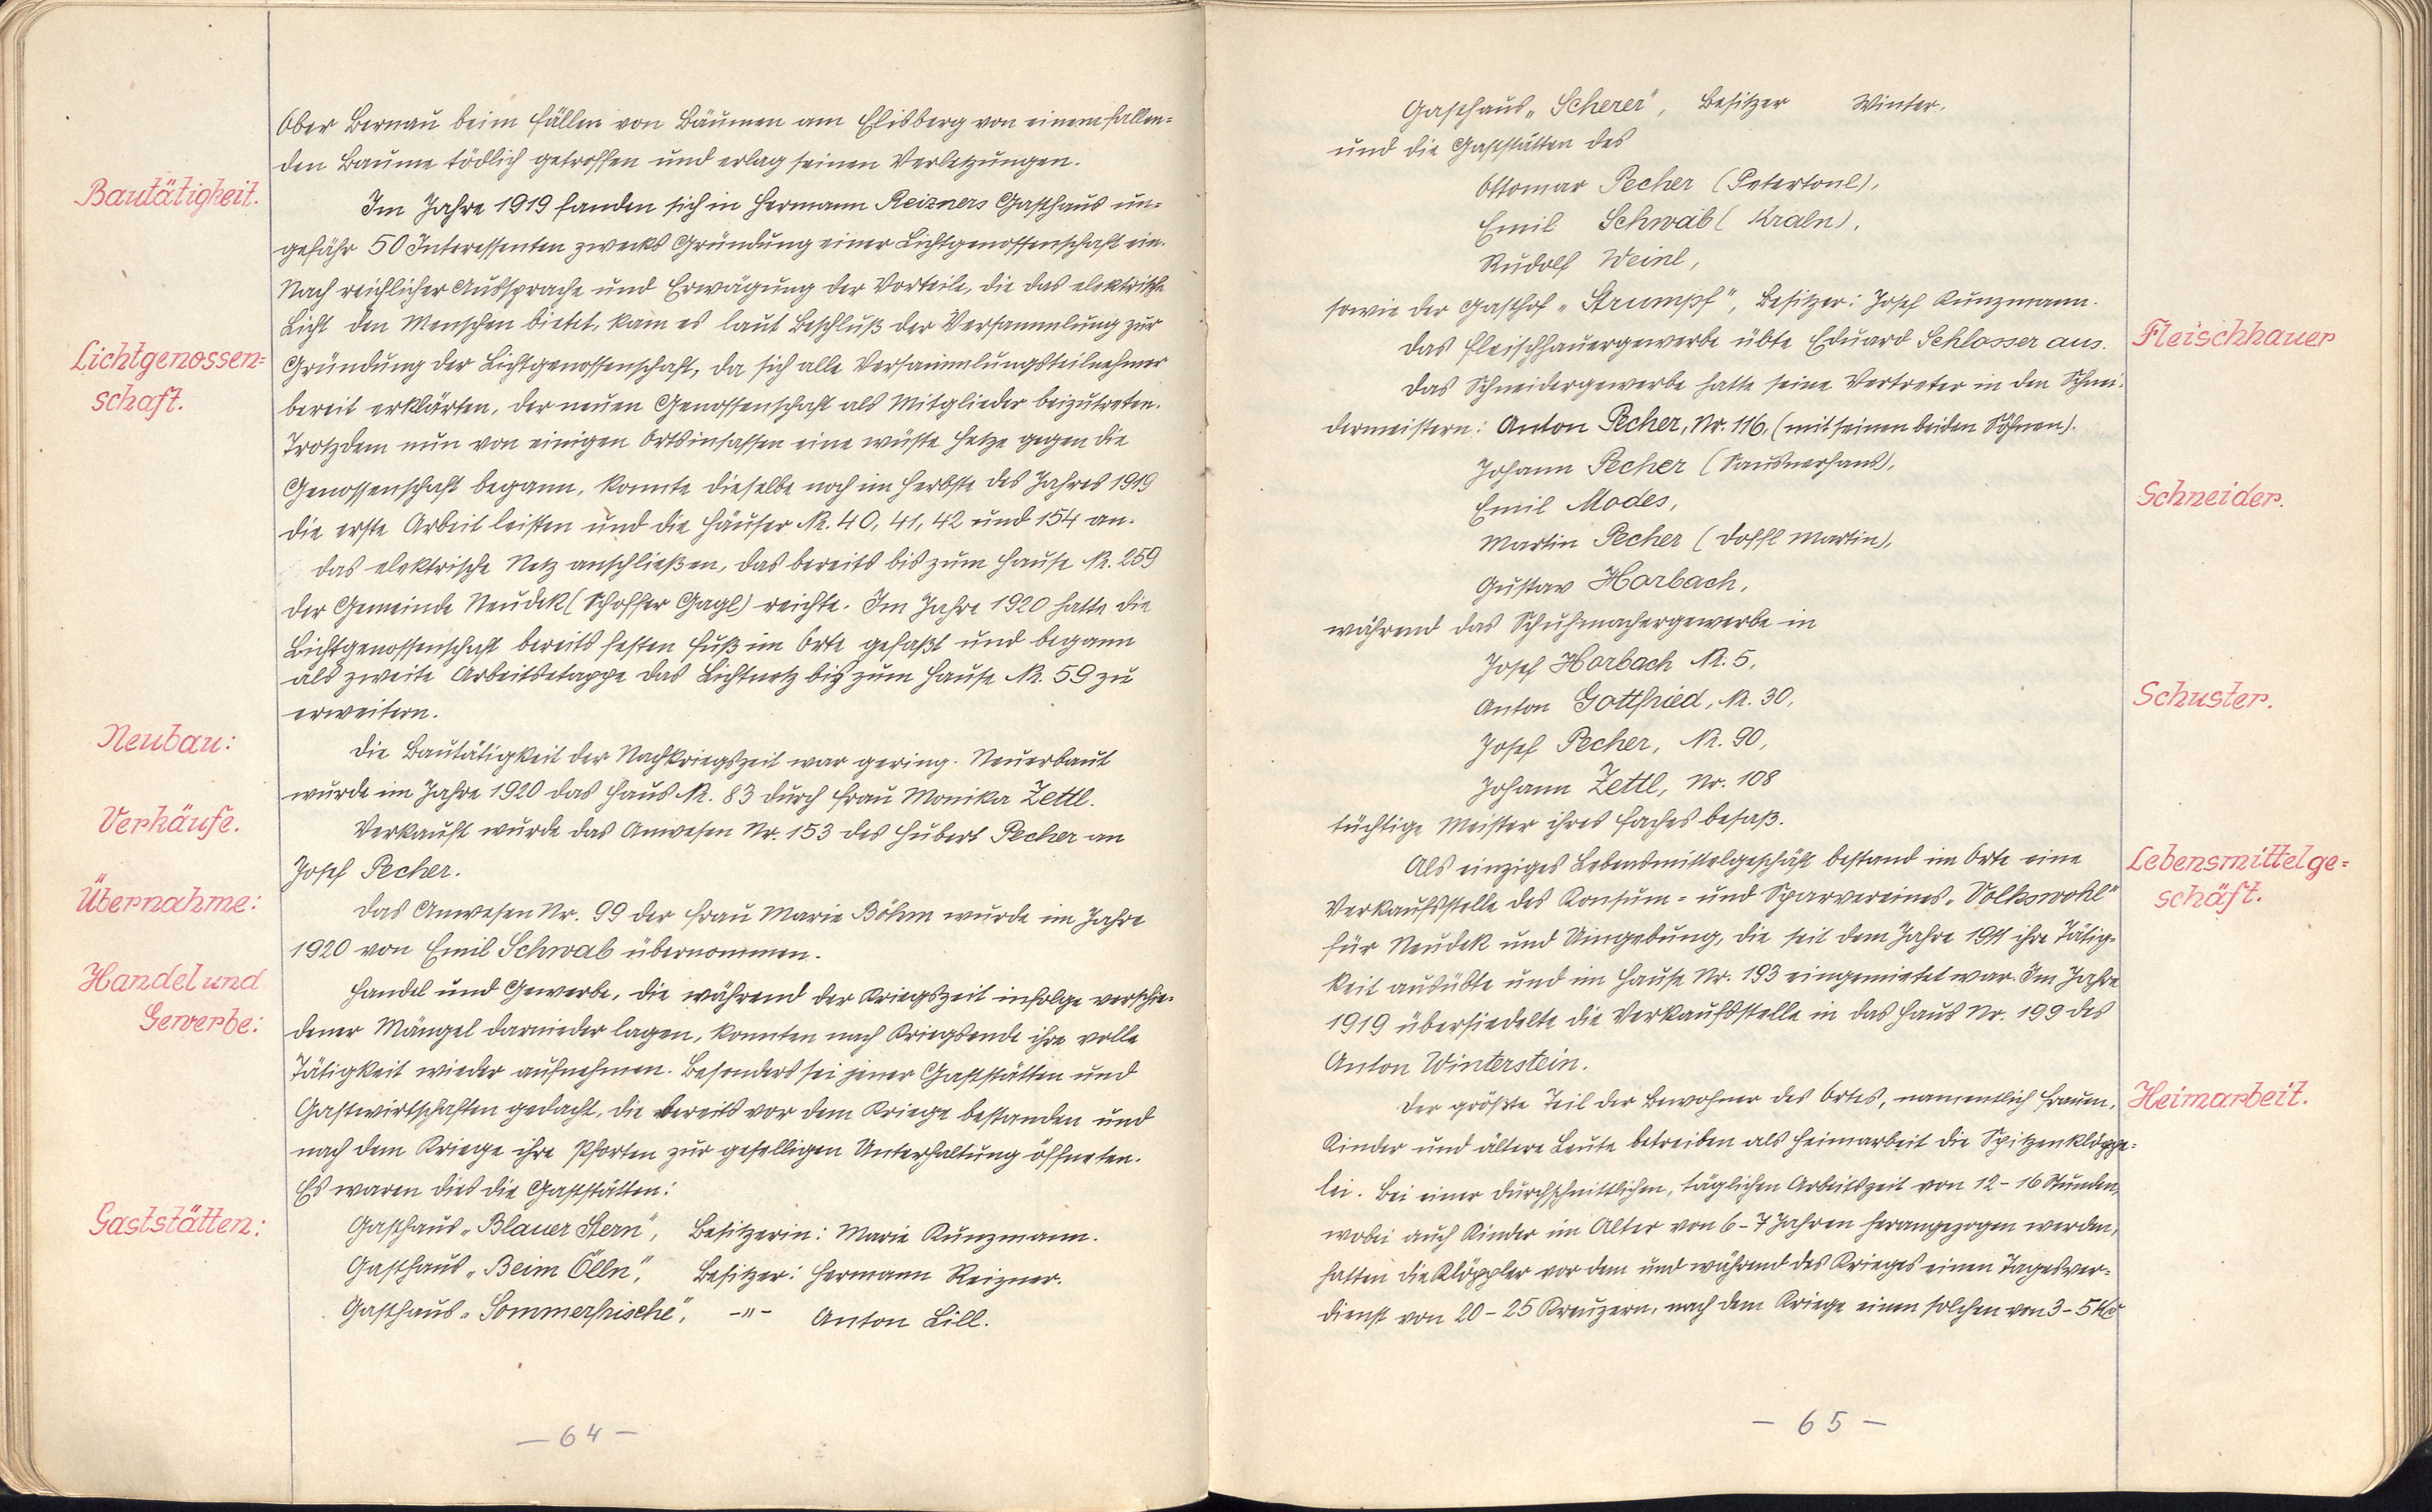 Ober Bernau beim Fällen von Bäumen am Eisberg von einem fallen=
den Baume tödlich getroffen und erlag seinen Verletzungen.
Bautätigkeit.
Im Jahre 1919 fanden sich in Hermann Reizners Gasthaus un=
gefähr 50 Interessenten zwecks Gründung einer Lichtgenossenschaft ein.
Nach reichlicher Aussprache und Erwägung der Vorteile, die das elektrische
Licht den Menschen bietet, kam es laut Beschluß der Versammlung zur
Lichtgenossen=
schaft.
Gründung der Lichtgenossenschaft, da sich alle Versammlungsteilnehmer
bereit erklärten, der neuen Genossenschaft als Mitglieder beizutreten.
Trotzdem nun von einigen Ortsinsassen eine wüste Hetze gegen die
Genossenschaft begann, konnte dieselbe noch im Herbste des Jahres 1919
die erste Arbeit leisten und die Häuser Nr. 40, 41, 42 und 154 an.
das elektrische Netz anschließen, das bereits bis zum Hause Nr. 259
der Gemeinde Neudek (Schoffer Gagl) reichte. Im Jahre 1920 hatte die
Lichtgenossenschaft bereits festen Fuß im Orte gefaßt und begann
als zweite Arbeitsetappe das Lichtnetz bis zum Hause Nr. 59 zu
erweitern.
Neubau:
Die Bautätigkeit der Nachkriegszeit war gering. Neuerbaut
wurde im Jahre 1920 das Haus Nr. 83 durch Frau Monika Zettl.
Verkäufe.
Verkauft wurde das Anwesen Nr. 153 des Hubert Pecher an
Josef Pecher.
Übernahme:
Das Anwesen Nr. 99 der Frau Marie Böhm wurde im Jahre
1920 von Emil Schwab übernommen.
Handel und
Gewerbe:
Handel und Gewerbe, die während der Kriegszeit infolge verschie=
dener Mängel darnieder lagen, konnten nach Kriegsende ihre volle
Tätigkeit wieder aufnehmen. Besonders sei jener Gaststätten und
Gastwirtschaften gedacht, die bereits vor dem Kriege bestanden und
nach dem Kriege ihre Pforten zur geselligen Unterhaltung öffneten.
Es waren dies die Gaststätten:
Gaststätten:
Gasthaus „Blauer Stern", Besitzerin: Marie Kunzmann.
Gasthaus „Beim Ölln", Besitzer: Hermann Reizner.
Gasthaus „Sommerfrische", -"- Anton Lill.
— 64 —
Gasthaus „Scherer", Besitzer Winter.
und die Gaststätten des
Ottomar Pecher (Petertonl),
Emil Schwab (Kraln),
Rudolf Weinl,
sowie der Gasthof „Strumpf", Besitzer: Josef Kunzmann.
Fleischhauer
Das Fleischhauergewerbe übte Eduard Schlosser aus.
Das Schneidergewerbe hatte seine Vertreter in den Schnei=
dermeistern: Anton Pecher, Nr. 116, (mit seinen beiden Söhnen).
Johann Pecher (Sausnerhans),
Schneider.
Emil Modes,
Martin Pecher (Doffl Martin),
Gustav Horbach,
während das Schuhmachergewerbe in
Josef Horbach Nr. 5,
Schuster.
Anton Gottfried, Nr. 30,
Josef Pecher, Nr. 90,
Johann Zettl, Nr. 108
tüchtige Meister ihres Faches besaß.
Lebensmittelge=
schäft.
Als einziges Lebensmittelgeschäft bestand im Orte eine
Verkaufsstelle des Konsum= und Sparvereines „Volkswohl"
für Neudek und Umgebung, die seit dem Jahre 1911 ihre Tätig=
keit ausübte und im Hause Nr. 193 eingemietet war. Im Jahre
1919 übersiedelte die Verkaufsstelle in das Haus Nr. 199 des
Anton Winterstein.
Heimarbeit.
Der größte Teil der Bewohner des Ortes, namentlich Frauen,
Kinder und ältere Leute betreiben als Heimarbeit die Spitzenklöppe=
lei. Bei einer durchschnittlichen, täglichen Arbeitszeit von 12-16 Stunden,
wobei auch Kinder im Alter von 6-7 Jahren herangezogen werden,
hatten die Klöppler vor dem und während des Krieges einen Tagesver=
dienst von 20-25 Kreuzern, nach dem Kriege einen solchen von 3-5 Kč
— 65 —